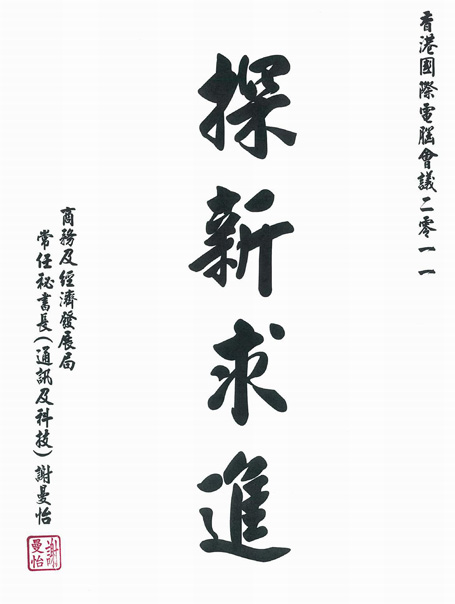 香港國際電腦會議二零一一
探新求進
商務及經濟發展局
常任秘書長(通訊及科技)謝曼怡
謝曼怡